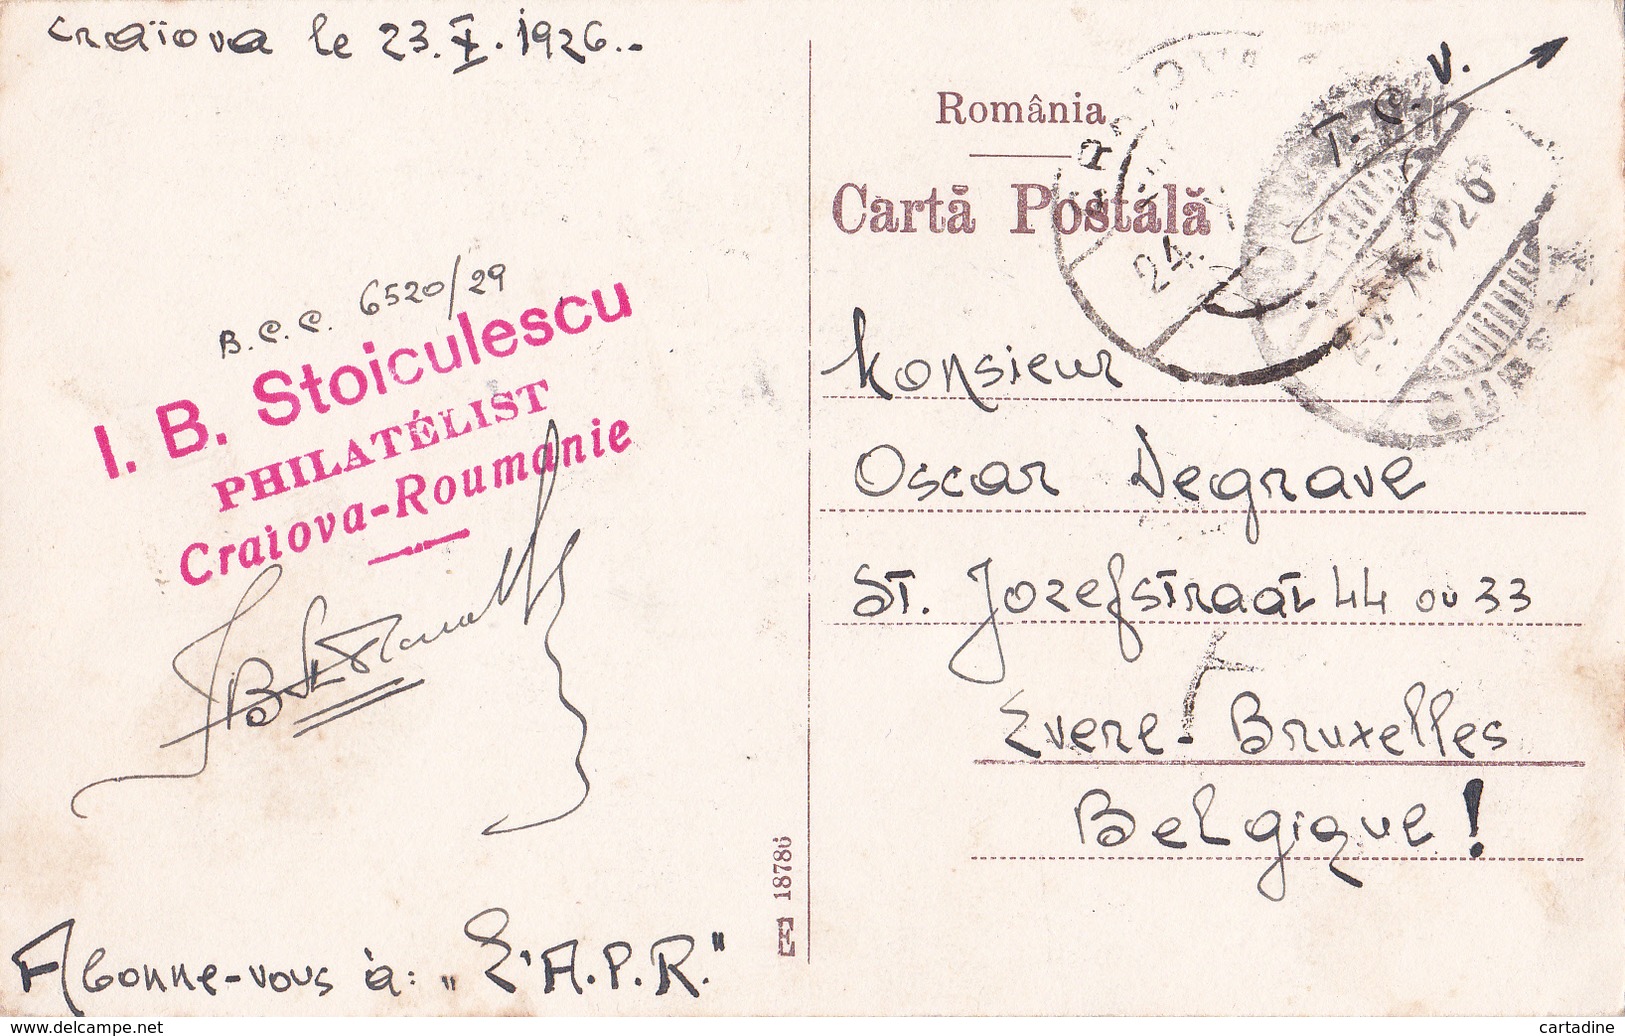 Craïova le 23.X.1926..
B.C.C. 6520/29
I. B. Stoiculescu
PHILATÉLIST
Craiova-Roumanie
Abonne-vous à: „L'A.P.R."
E 18786
România
Cartă Poștală
T. C. V.
24.
926
Monsieur
Oscar Degrave
St. Jozefstraat 44 ou 33
Evere-Bruxelles
Belgique!
delcampe.net
cartadine